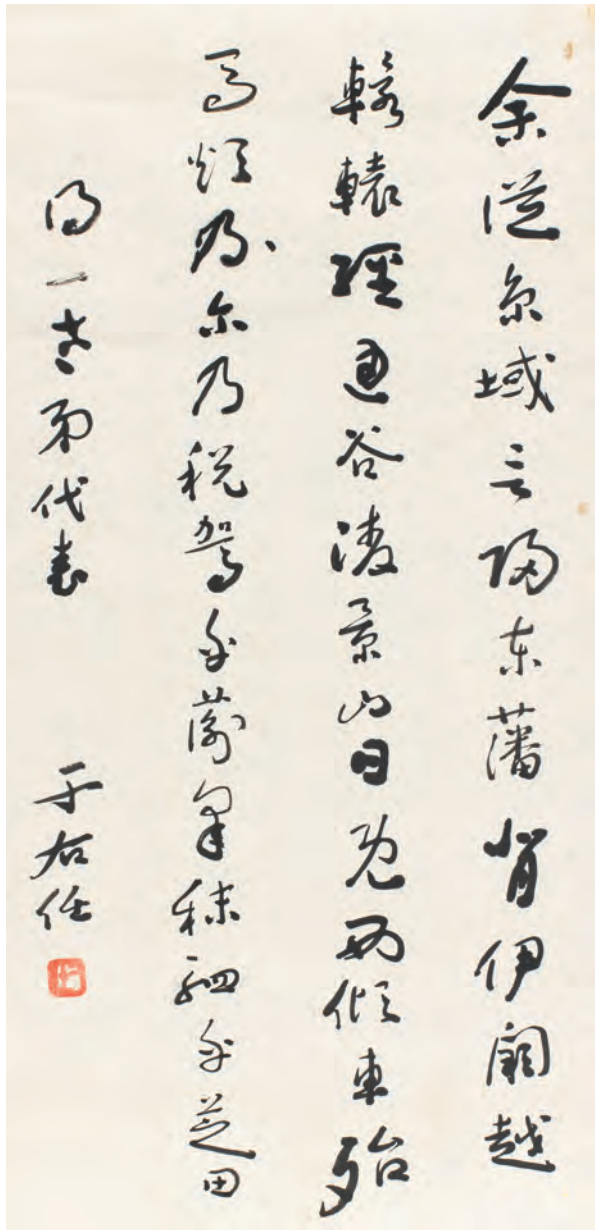 余從京域言歸東藩背伊闕越
轘轅經通谷淩景山日既西傾車殆
馬煩尔乃稅駕乎蘅皋秣駟乎芝田
得一老弟代表 于右任